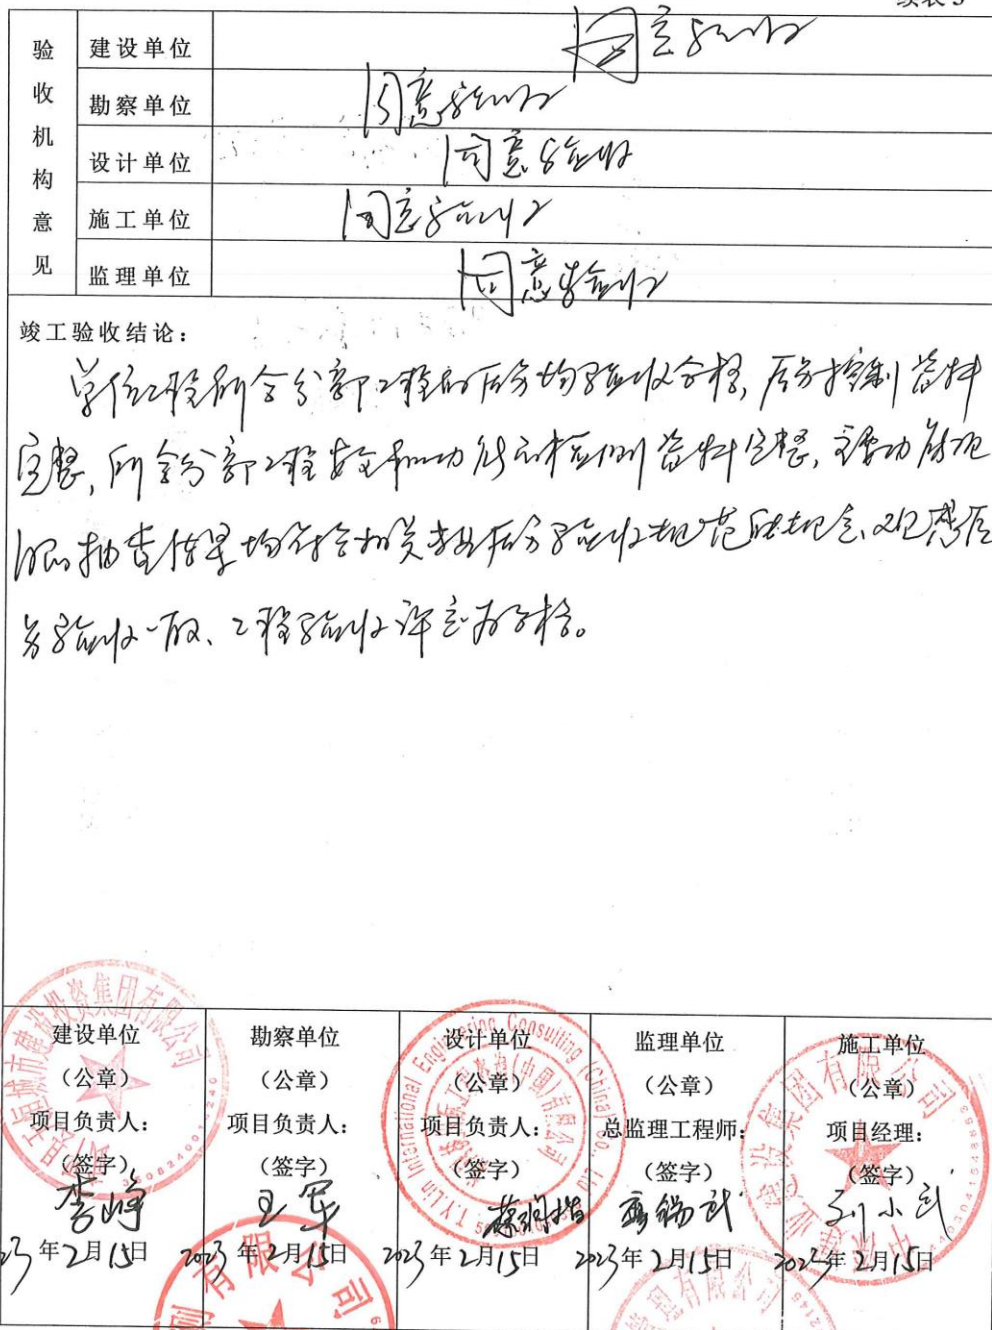 续表3
验收机构意见
建设单位 同意验收
勘察单位 同意验收
设计单位 同意验收
施工单位 同意验收
监理单位 同意验收
竣工验收结论：
单位工程所含分部工程的质量均验收合格，质量控制资料
完整，所含分部工程安全和功能检测资料完整，主要功能项
目的抽查结果均符合相关专业质量验收规范的规定，观感质
量验收一般、工程验收评定为合格。
建设单位 勘察单位 设计单位 监理单位 施工单位
（公章） （公章） （公章） （公章） （公章）
项目负责人： 项目负责人： 项目负责人： 总监理工程师： 项目经理：
（签字） （签字） （签字） （签字） （签字）
李峥 王军
23年2月15日 2023年2月15日 2023年2月15日 2023年2月15日 2023年2月15日
建设投资集团有限公司
T.Y.Lin International Engineering Consulting (China) Co., Ltd
建设集团有限公司
有限公司